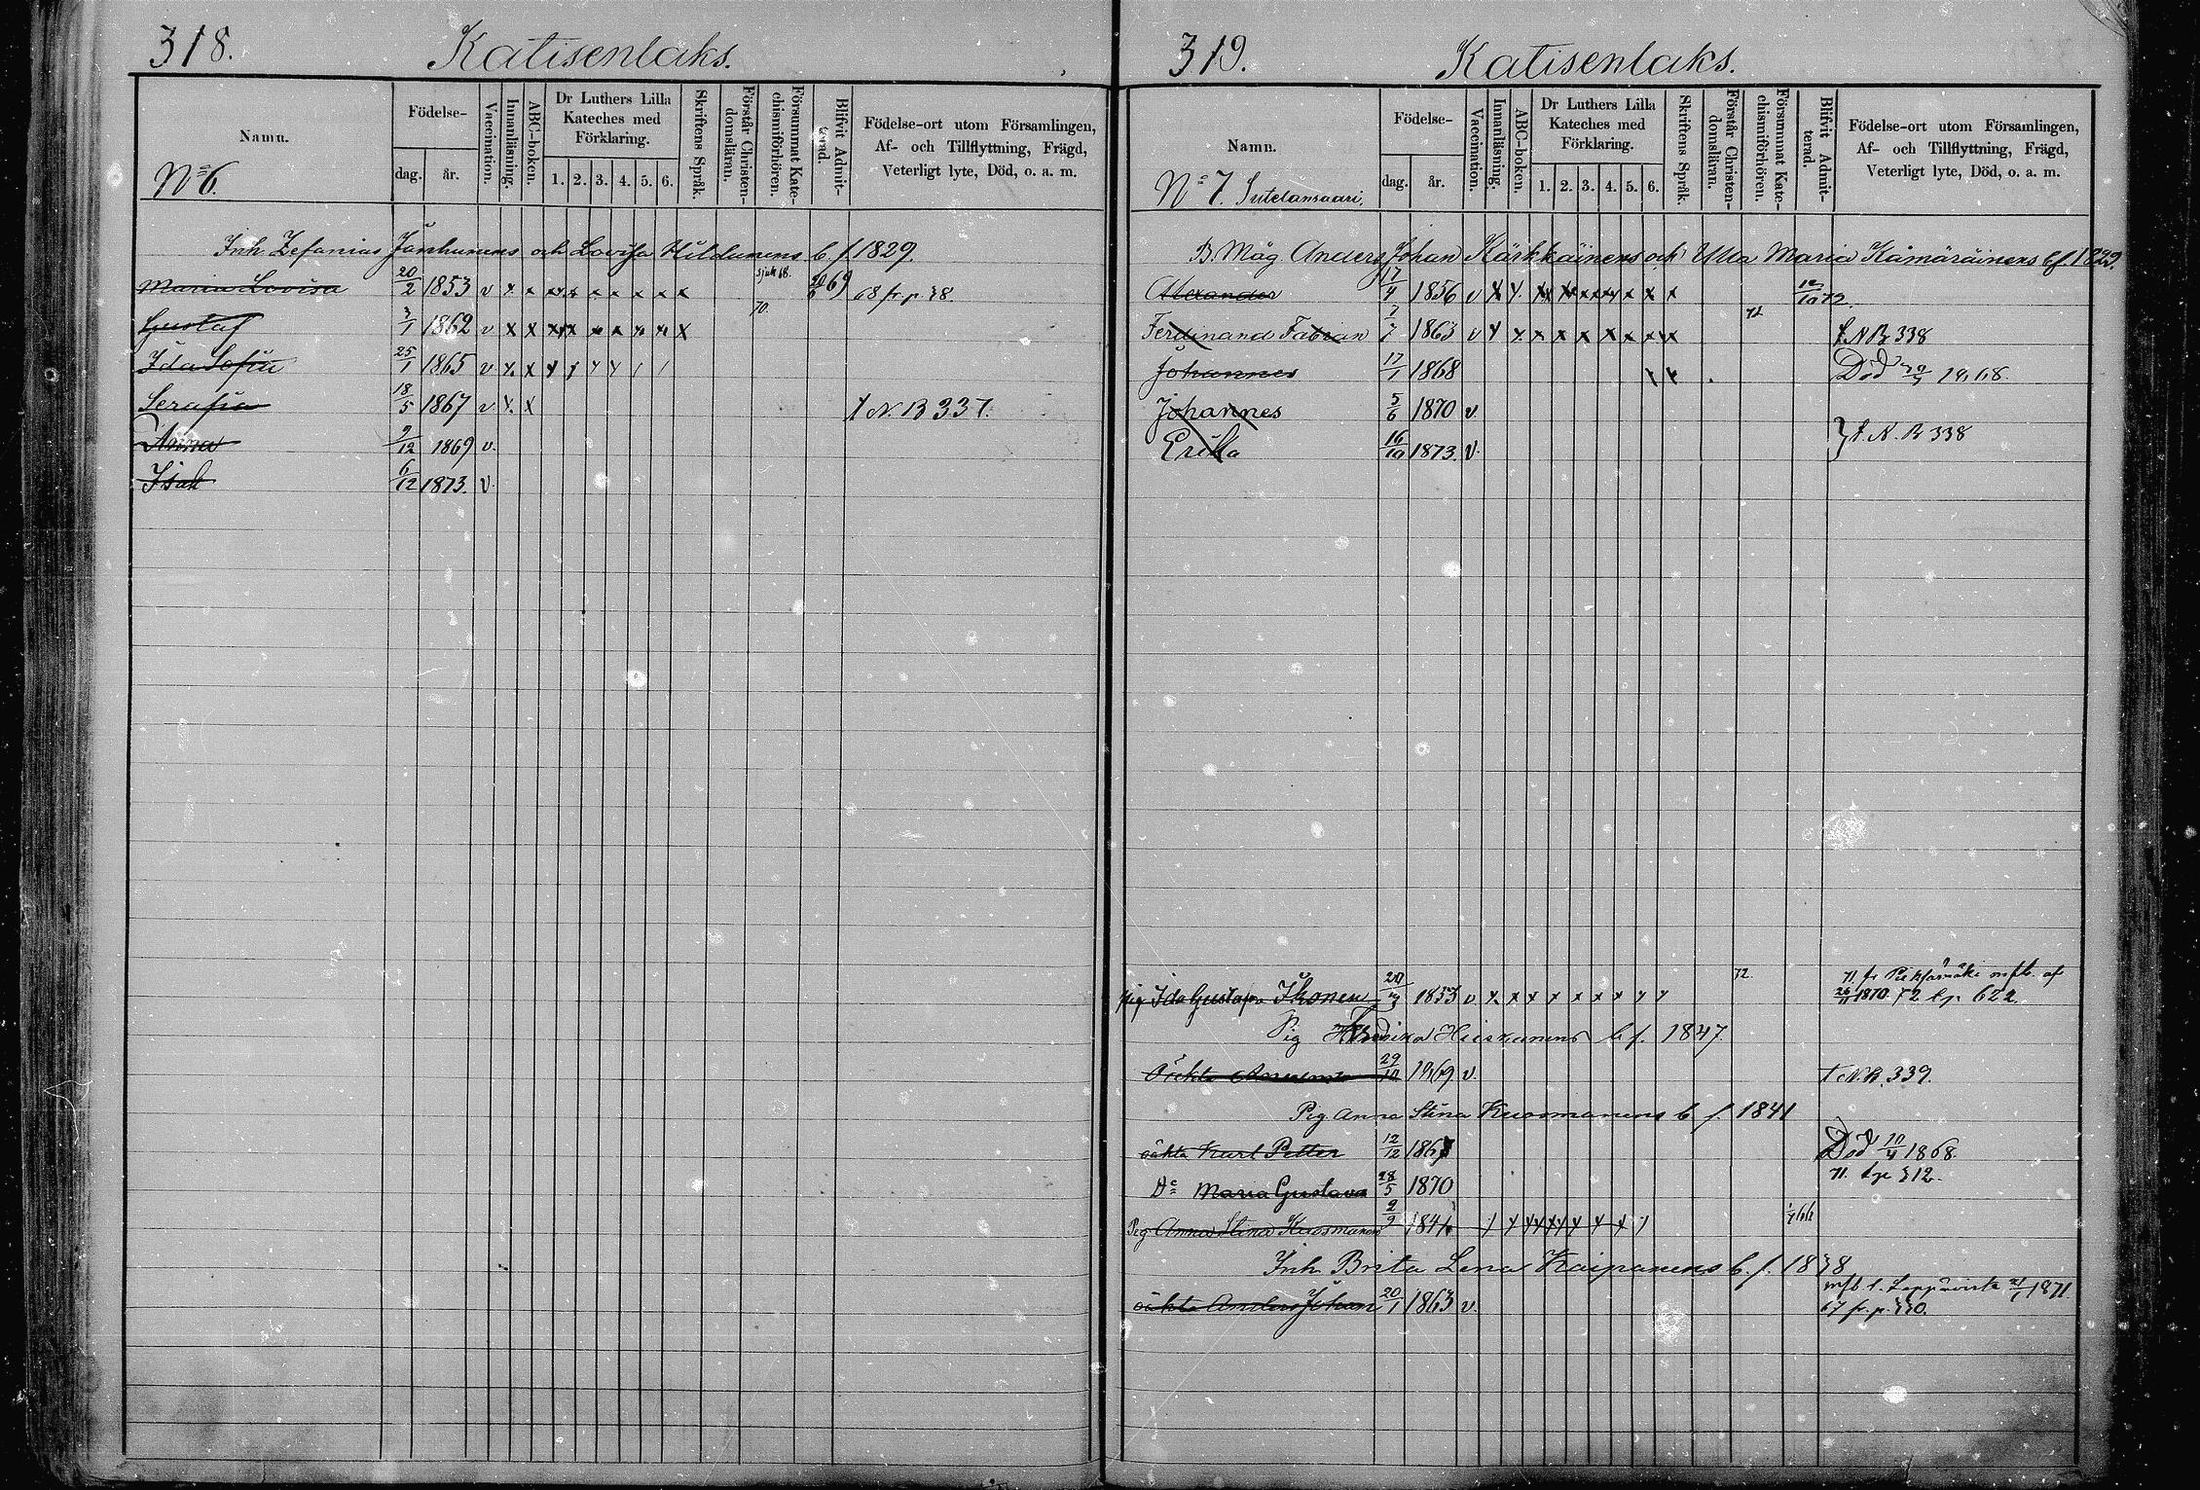 318. Katisenlaks.
Namn.
Födelse-
dag. år.
Vaccination.
Innanläsning.
ABC-boken.
Dr Luthers Lilla
Kateches med
Förklaring.
1. 2. 3. 4. 5. 6.
Skriftens Språk.
Förstår Christen-
domsläran.
Försummat Kate-
chismiförhören.
Blifvit Admit-
terad.
Födelse-ort utom Församlingen,
Af- och Tillflyttning, Frägd,
Veterligt lyte, Död, o. a. m.
No 6.
Inh. Zefanias Janhunens och Lovisa Huldunens b. f. 1829.
Maria Lovisa 20/2 1853 v x x x x x x x x x sjuk 68. 69
70.
Gustaf 3/1 1862 v x x x x x x x x x
Ida Sofia 25/1 1865 v x x
Serafia 18/5 1867 v x x N. B 337.
Anna 9/12 1869 v.
Isak 6/12 1873. v.
319. Katisenlaks.
Namn.
Födelse-
dag. år.
Vaccination.
Innanläsning.
ABC-boken.
Dr Luthers Lilla
Kateches med
Förklaring.
1. 2. 3. 4. 5. 6.
Skriftens Språk.
Förstår Christen-
domsläran.
Försummat Kate-
chismiförhören.
Blifvit Admit-
terad.
Födelse-ort utom Församlingen,
Af- och Tillflyttning, Frägd,
Veterligt lyte, Död, o. a. m.
No 7. Sutelansaari.
B. Måg Anders Johan Kärkkäinens och Ulla Maria Kämäräinens b f.
Alexander 17/4 1856 v x x x x x x x x x 72.
Ferdinand Fabian 1/7 1863 v x x x x x x x x x N B 338
Johannes 17/1 1868 Död
Johannes 5/6 1870 v.
Erika 16/10 1873. v. N. B 338
72.
Pig Ida Gustafva Ikonen 1853 v x x x x x x x
26/11 1870. 72 622.
Pig Hiiskunens b f. 1847.
29/10 1869 v. N.B. 339.
Pig Anna Stina Kuosmanens b f. 1841
oäkta Karl Petter 12/12 1867 Död 10/4 1868
71. 312.
Do Maria Gustava 28/5 1870
Pig Anna Stina Kuosmanen 2/9 1841
Inh. Brita Lena Kaipanens b. f. 1838
1871.
oäkta Anders Johan 20/1 1863 v. 67 fr. p.